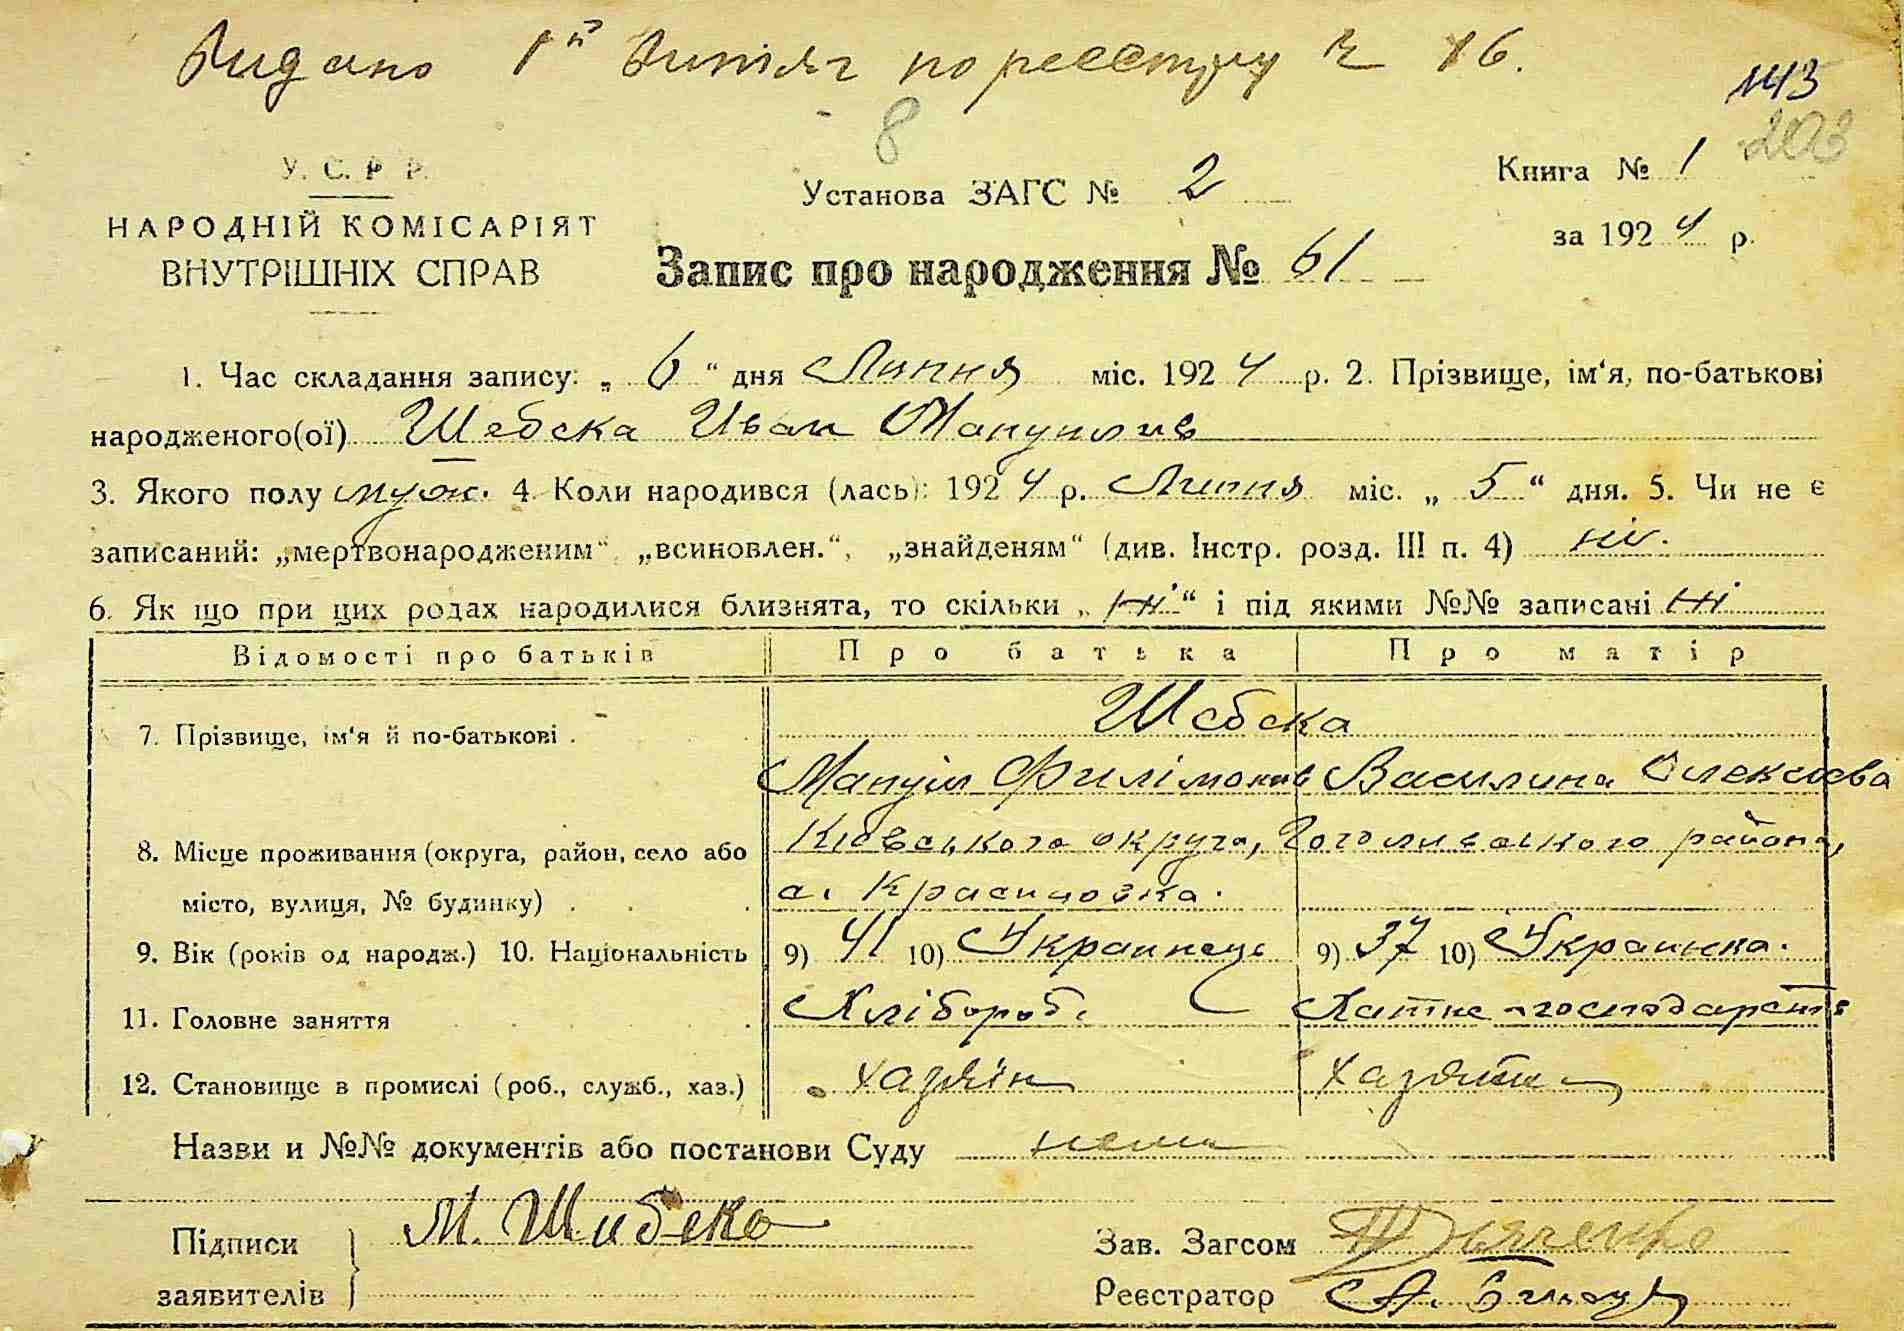 Видано 1й Витяг по реєстру № 16.
143
8
203
У. С. Р. Р.
НАРОДНІЙ КОМІСАРІЯТ
ВНУТРІШНІХ СПРАВ
Установа ЗАГС № 2
Книга № 1
за 1924 р.
Запис про народження № 61
1. Час складання запису: „ 6 “ дня Липня міс. 1924 р. 2. Прізвище, ім‘я, по-батькові
народженого(ої) Шебека Иван Мануилив
3. Якого полу муж. 4. Коли народився (лась): 1924 р. Липня міс. „ 5 “ дня. 5. Чи не є
записаний: „мертвонародженим“, „всиновлен.“, „знайденям“ (див. Інстр. розд. III п. 4) ні.
6. Як що при цих родах народилися близнята, то скільки „ ні “ і під якими №№ записані ні
Відомості про батьків Про батька Про матір
7. Прізвище, ім‘я й по-батькові . Шебека
Мануил Филімонив Василина Олексієва
8. Місце проживання (округа, район, село або Київського округа, Гоголивського района,
місто, вулиця, № будинку) . . . с. Красиловка.
9. Вік (років од народж.) 10. Національність 9) 41 10) Украинець 9) 37 10) Украинка.
11. Головне заняття . . . . Хлібороб. Хатне-господарст.
12. Становище в промислі (роб., служб., хаз.) хазяїн хазяйка
Назви и №№ документів або постанови Суду нема
Підписи М. Шибеко
заявителів
Зав. Загсом Дяченко
Реєстратор А.